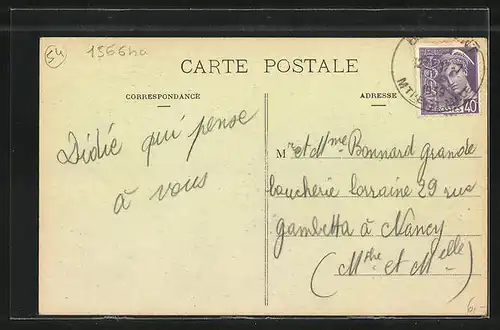 54
1566ha
CARTE POSTALE
CORRESPONDANCE
ADRESSE
40
Didié qui pense
à vous
Mr et Mme Bonnard grande
boucherie lorraine 29 rue
gambetta à Nancy
(Mthe et Melle)
6,-